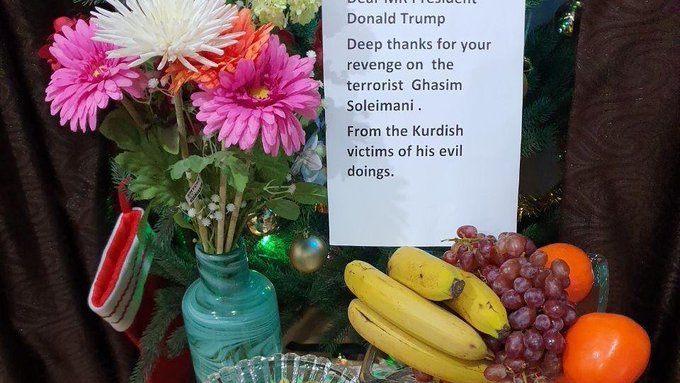 Dear MR President
Donald Trump
Deep thanks for your
revenge on the
terrorist Ghasim
Soleimani .
From the Kurdish
victims of his evil
doings.